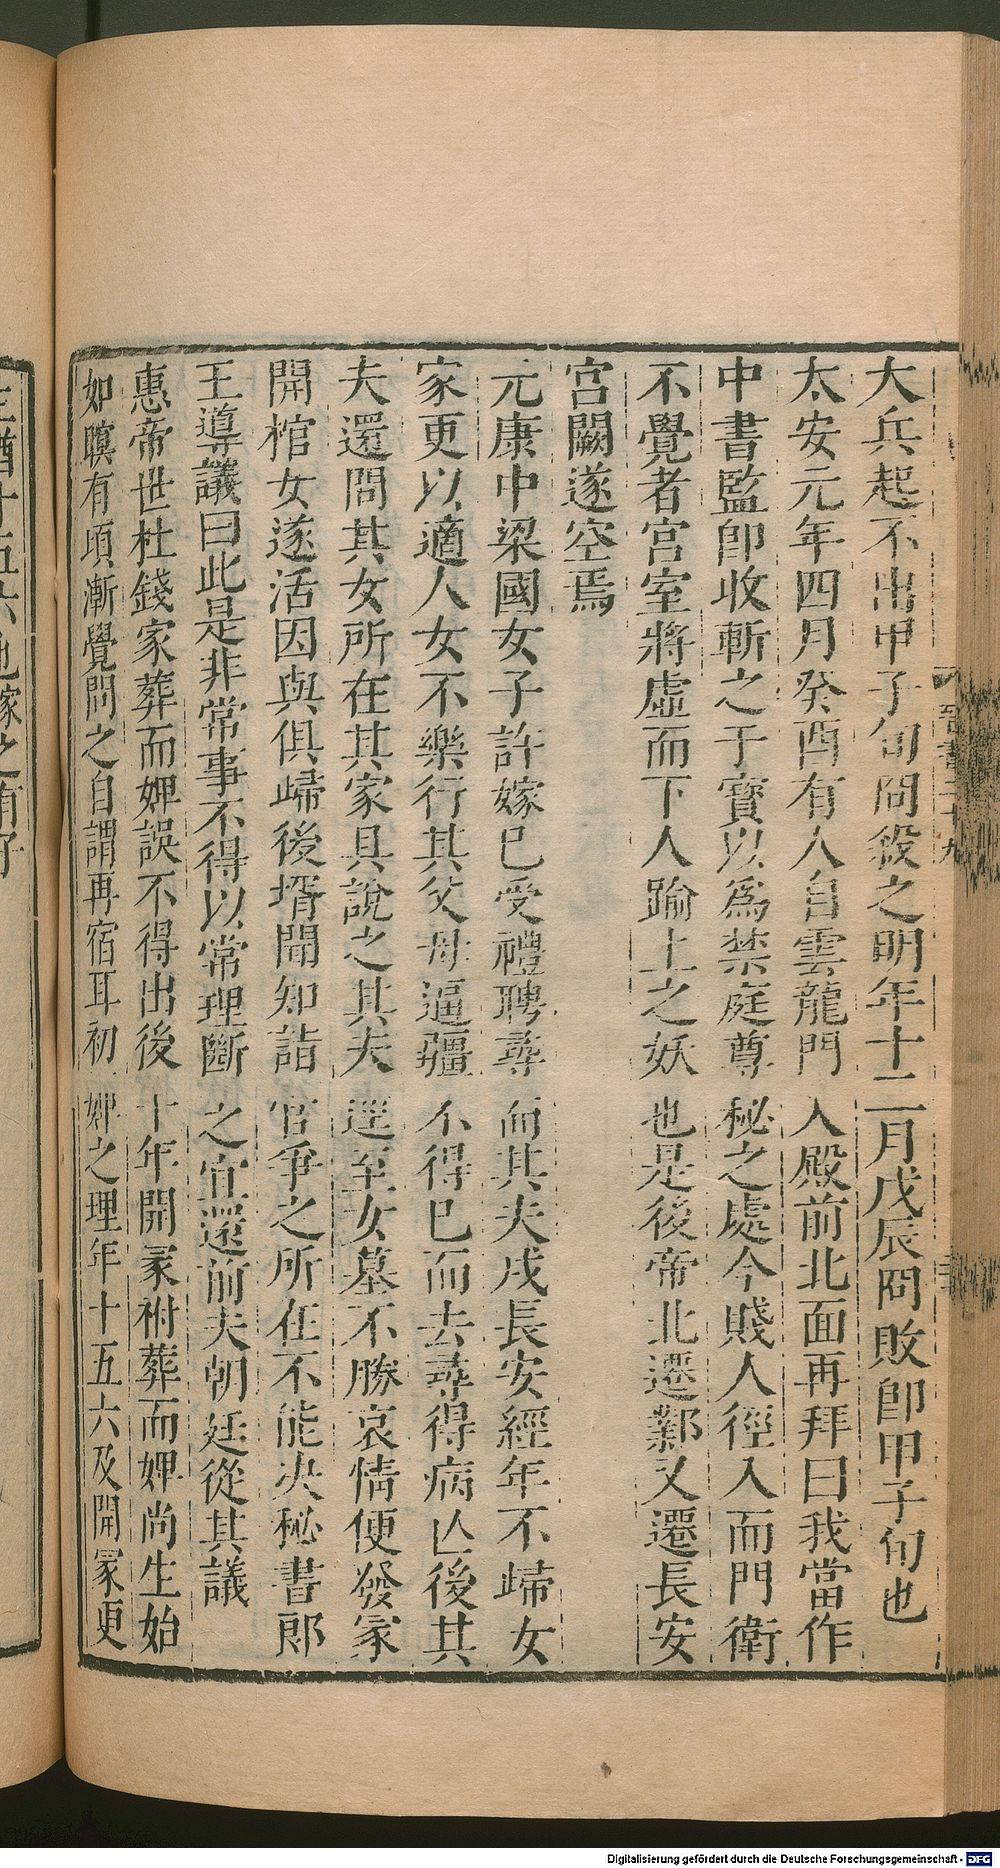 大兵起不出甲子旬冏殺之明年十二月戊辰冏敗卽甲子旬也
太安元年四月癸酉有人自雲龍門入殿前北面再拜曰我當作
中書監卽收斬之于寶以爲禁庭尊秘之處今賤人徑入而門衛
不覺者宮室將虛而下人踰上之妖也是後帝北遷鄴又遷長安
宮闕遂空焉
元康中梁國女子許嫁已受禮聘尋而其夫戍長安經年不歸女
家更以適人女不樂行其父母逼疆不得已而去尋得病亾後其
夫還問其女所在其家具說之其夫逕至女墓不勝哀情便發冢
開棺女遂活因與俱歸後壻聞知詣官爭之所在不能决秘書郎
王導議曰此是非常事不得以常理斷之宜還前夫朝廷從其議
惠帝世杜錢家葬而婢誤不得出後十年開冢祔葬而婢尚生始
如瞑有頃漸覺問之自謂再宿耳初婢之理年十五六及開冢更
生猶十五六也嫁之有子
Digitalisierung gefördert durch die Deutsche Forschungsgemeinschaft - DFG